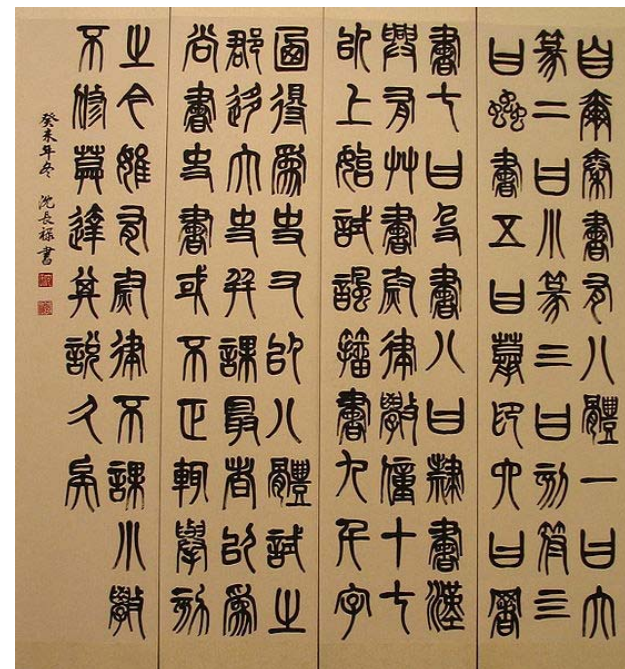 自爾秦書有八體一曰大
篆二曰小篆三曰刻符四
曰蟲書五曰摹印六曰署
書七曰殳書八曰隸書漢
興有艸書尉律學僮十七
以上始試諷籀書九千字
得爲吏又以八體試之
郡移大史并課最者以爲
尚書史書或不正輒舉劾
之今雖有尉律不課小學
不修莫達其說久矣
癸未年冬 沈長祿書